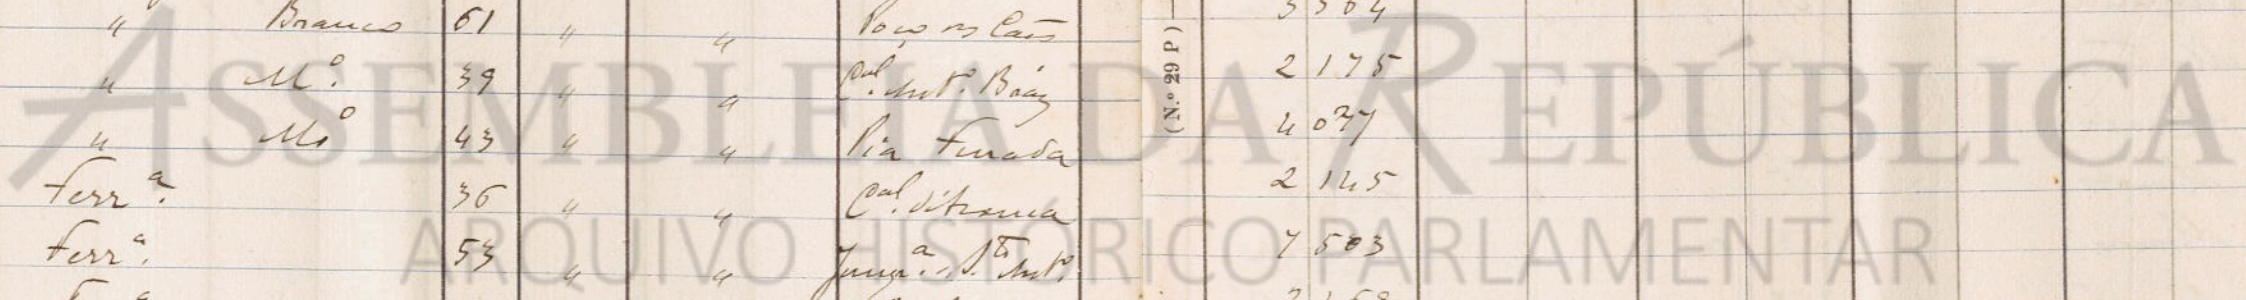 " Branco 61 " " Poço os Cães 3 3 0 4
" M.º 39 " " Cal. Antº. Bráz 2 175
" Mº 43 " " Pia Furada 4 077
Ferr.ª 36 " " Cal. 2 145
Ferr.ª 53 " " Stº Antº. 7 503
(N.º 29 P)
ASSEMBLEIA DA REPÚBLICA
ARQUIVO HISTÓRICO PARLAMENTAR